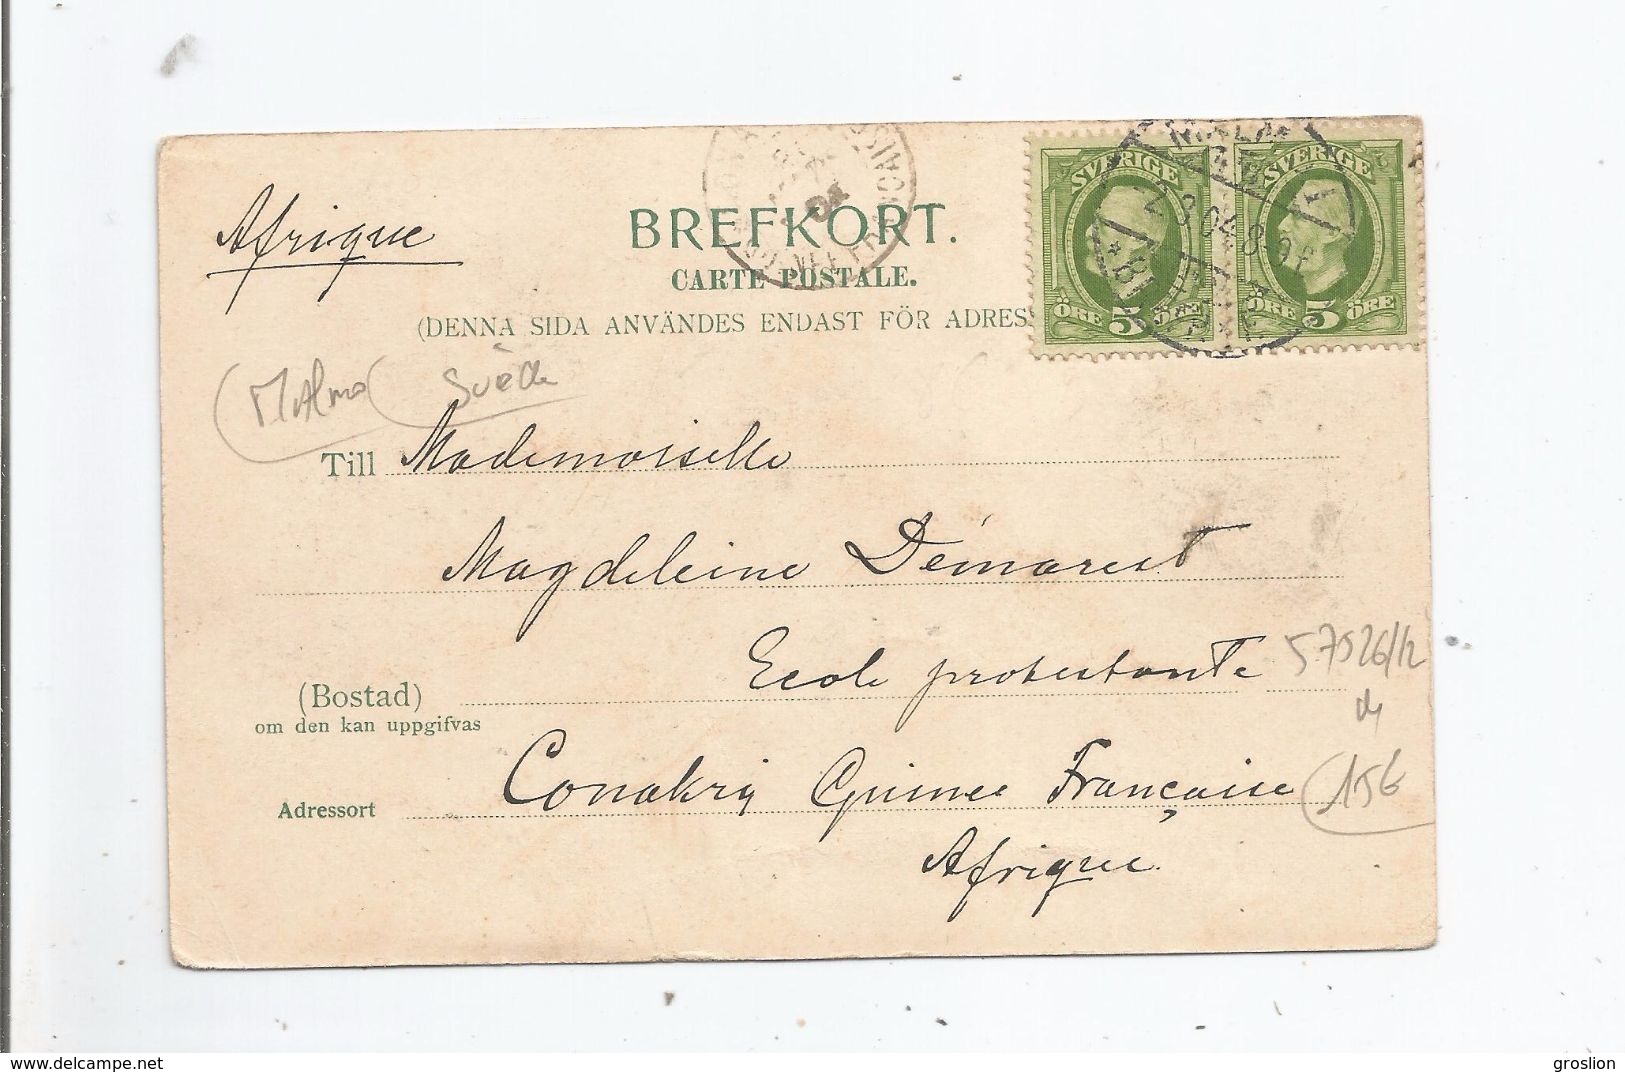 Afrique
BREFKORT.
CARTE POSTALE.
(DENNA SIDA ANVÄNDES ENDAST FÖR ADRES
SVERIGE SVERIGE
5 ÖRE ÖRE 5 ÖRE
2 3 04 8-9 F
04
Malmo Suède
Till Mademoiselle
Magdeleine Démarest
Ecole protestante
57526/12
(Bostad)
om den kan uppgifvas
Conakry Guinee Française
15€
Adressort
Afrique.
www.delcampe.net
groslion